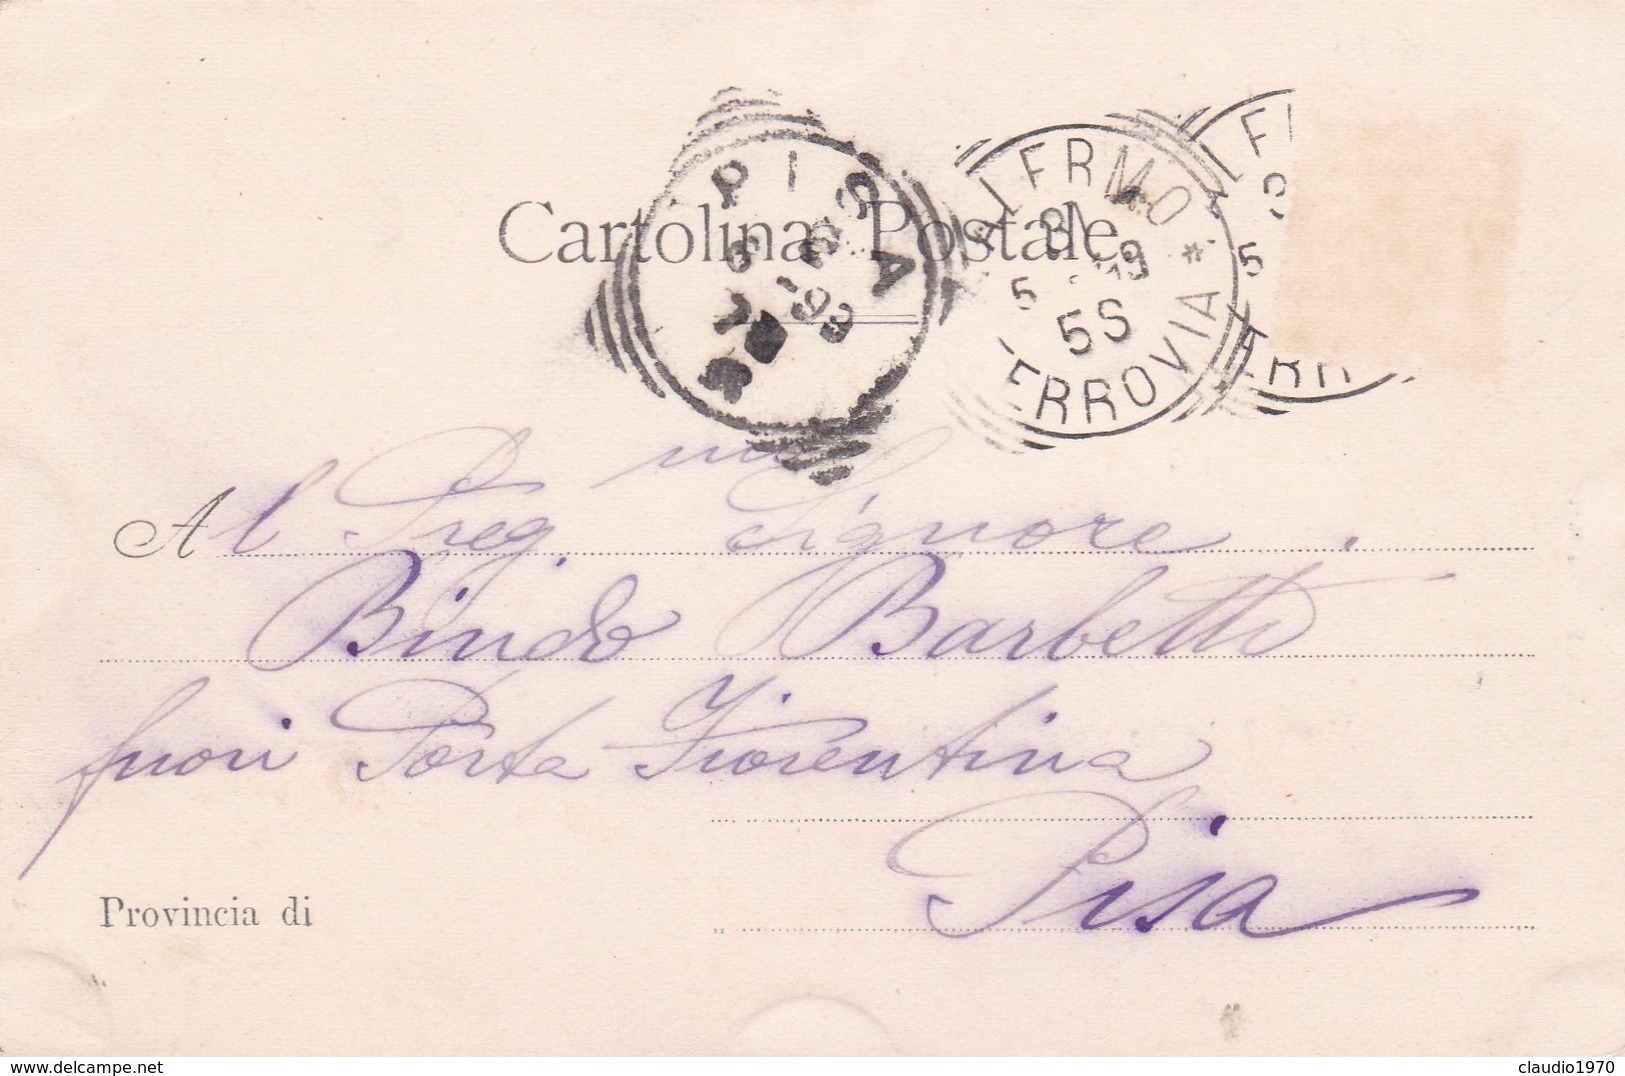 Cartolina Postale
PISA
6
99
PALERMO
5 99
5S
FERROVIA *
5
Al Preg.mo Signore
Bindo Barbetti
fuori Porta Fiorentina
Pisa
Provincia di
delcampe.net
claudio1970